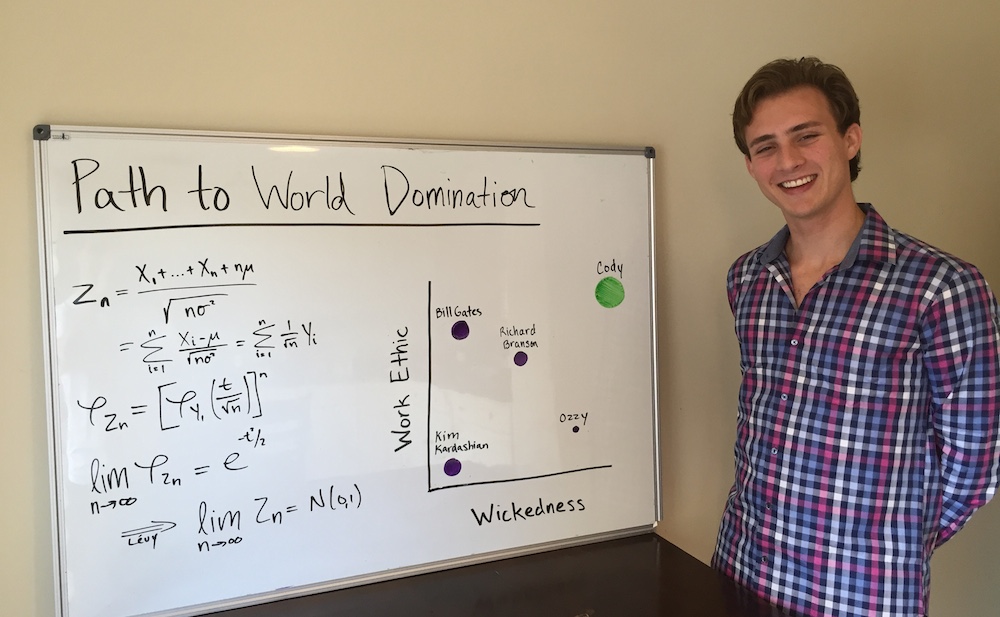 Path to World Domination
Zₙ = (X₁+...+Xₙ+nμ) / √(nσ²)
= Σⁿᵢ₌₁ (Xᵢ-μ)/√(nσ²) = Σⁿᵢ₌₁ (1/√n) Yᵢ
φ_Zₙ = [φ_Y₁ (t/√n)]ⁿ
lim n→∞ φ_Zₙ = e^(-t²/2)
⟹ LÉVY lim n→∞ Zₙ = N(0,1)
Cody
Bill Gates
Richard
Branson
Ozzy
Kim
Kardashian
Work Ethic
Wickedness